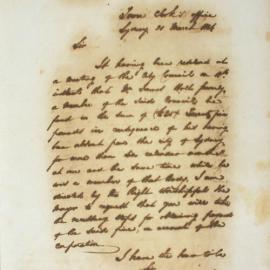 Town Clerk's office
Sydney 21 March 1846
Sir
It having been resolved at
a meeting of the City Council on
that Mr
a member of the said Council be
fined in the sum of £25 Twenty five
pounds in consequence of his having
been absent from the City of Sydney
for more than
at one and the same time while he
was a member of that body, I am
directed by the Right Worshipful the
Mayor to request that you will take
the necessary steps for obtaining payment
of the said fine, on account of the
corporation
I have the honor to be